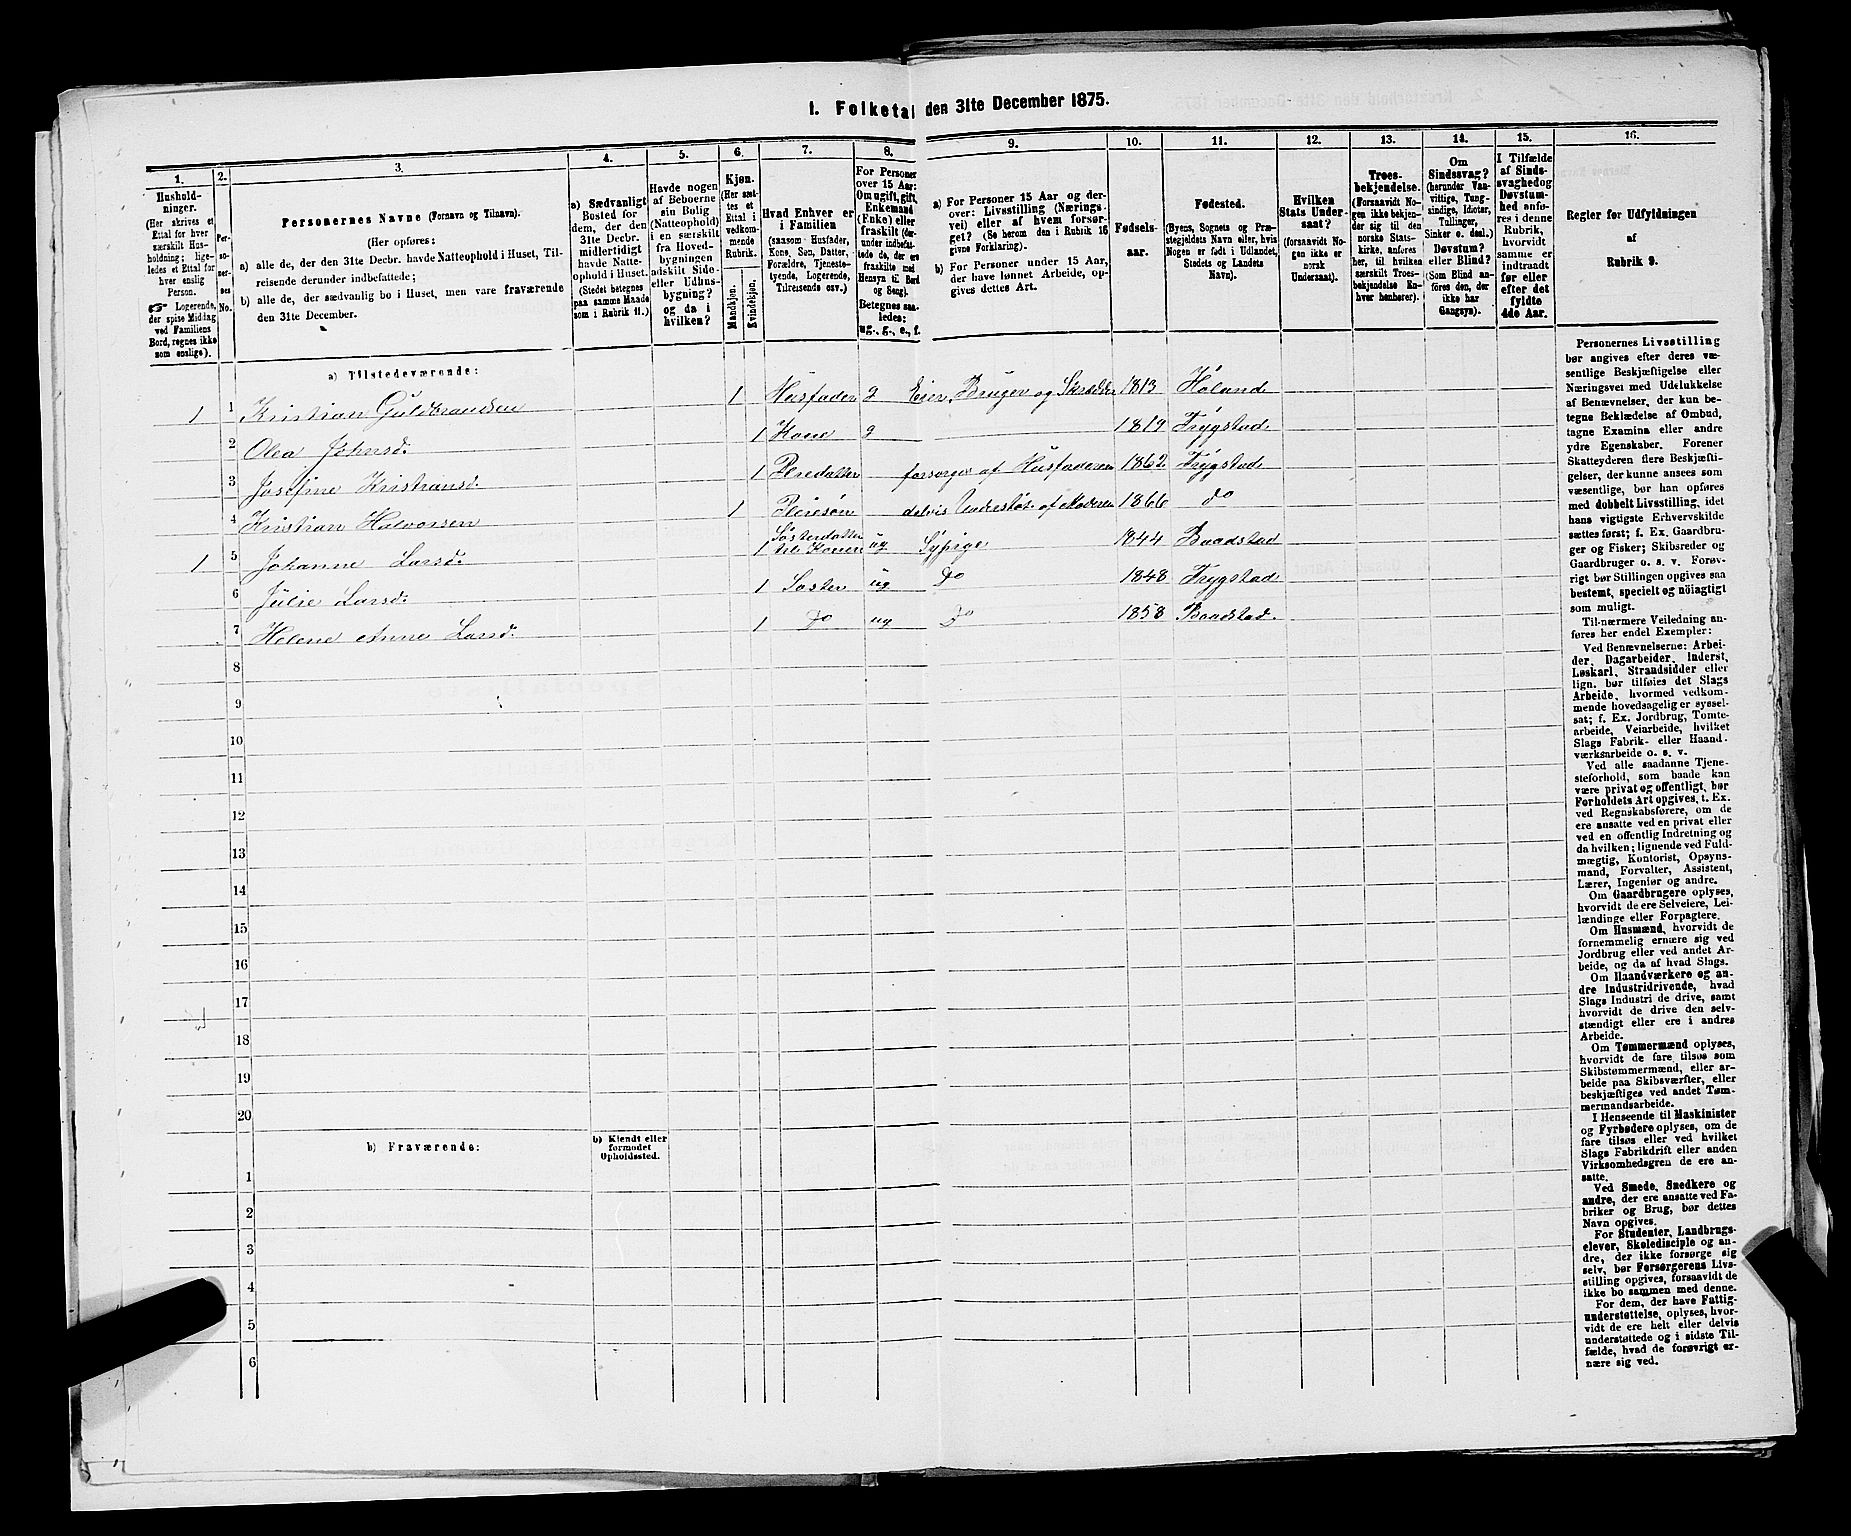 1. Folketal den 31te December 1875.
1.
Hushold-
ninger.
(Her skrives et
Ettal for hver
særskilt Hus-
holdning; lige-
ledes et Ettal for
hver enslig
Person.
☞ Logerende,
der spise Middag
ved Familiens
Bord, regnes ikke
som enslige).
2.
Per-
so-
ner-
nes
No.
3.
Personernes Navne (Fornavn og Tilnavn).
(Her opføres:
a) alle de, der den 31te Decbr. havde Natteophold i Huset, Til-
reisende derunder indbefattede;
b) alle de, der sædvanlig bo i Huset, men vare fraværende
den 31te December.
4.
a) Sædvanligt
Bosted for
dem, der den
31te Decbr.
midlertidigt
havde Natte-
ophold i Huset.
(Stedet betegnes
paa samme Maade
som i Rubrik 11.)
5.
Havde nogen
af Beboerne
sin Bolig
(Natteophold)
i en særskilt
fra Hoved-
bygningen
adskilt Side-
eller Udhus-
bygning?
og da i
hvilken?
6.
Kjøn.
(Her sæt-
tes et
Ettal i
vedkom-
mende
Rubrik.
Mandkjøn.
Kvindekjøn.
7.
Hvad Enhver er
i Familien
(saasom Husfader,
Kone, Søn, Datter,
Forældre, Tjeneste-
tyende, Logerende,
Tilreisende osv.)
8.
For Personer
over 15 Aar:
Om ugift, gift,
Enkemand
(Enke) eller
fraskilt (der-
under indbefat-
tede de, der ere
fraskilte med
Hensyn til Bord
og Seng).
Betegnes saa-
ledes:
ug., g., e., f.
9.
a) For Personer 15 Aar og der-
over: Livsstilling (Nærings-
vei) eller af hvem forsør-
get? (Se herom den i Rubrik 16
givne Forklaring).
b) For Personer under 15 Aar,
der have lønnet Arbeide, op-
gives dettes Art.
10.
Fødsels-
aar.
11.
Fødested.
(Byens, Sognets og Præ-
stegjeldets Navn eller, hvis
Nogen er født i Udlandet,
Stedets og Landets
Navn).
12.
Hvilken
Stats Under-
saat?
(forsaavidt No-
gen ikke er
norsk
Undersaat).
13.
Troes-
bekjendelse.
(Forsaavidt No-
gen ikke bekjen-
der sig til den
norske Stats-
kirke, anføres
her, til hvilken
særskilt Troes-
bekjendelse En-
hver henhører).
14.
Om
Sindssvag?
(herunder Van-
vittige, Tung-
sindige, Idioter,
Tullinger,
Sinker o. desl.)
Døvstum?
eller Blind?
(Som Blind an-
føres den, der
ikke har
Gangsyn).
15.
I Tilfælde
af Sinds-
svaghed og
Døvstum-
hed anfø-
res i denne
Rubrik,
hvorvidt
samme er
indtraadt
før eller
efter det
fyldte
4de Aar.
16.
Regler for Udfyldningen
af
Rubrik 9.
a) Tilstedeværende:
1 1 Kristian Guldbrandsen 1 Husfader g Eier, Bruger og Skrædder 1813 Høland
2 Olea Johnsd. 1 Kone g 1819 Trygstad
3 Josefine Kristiansd. 1 Pleiedatter forsørges af Husfaderen 1862 Trygstad
4 Kristian Halvorsen 1 Pleiesøn delvis Understøt. af Moderen 1866 do
1 5 Johanne Larsd. 1 Søsterdatter til Konen ug Sypige 1844 Baadstad
6 Julie Larsd. 1 Søster ug Do 1848 Trygstad
7 Helene Anne Larsd. 1 Do ug Do 1858 Baadstad.
8
9
10
11
12
13
14
15
16
17
18
19
20
b) Fraværende:
b) Kjendt eller
formodet
Opholdssted.
1
2
3
4
5
6
Personernes Livsstilling
bør angives efter deres væ-
sentlige Beskjæftigelse eller
Næringsvei med Udelukkelse
af Benævnelser, der kun be-
tegne Beklædelse af Ombud,
tagne Examina eller andre
ydre Egenskaber. Forener
Skatteyderen flere Beskjæfti-
gelser, der kunne ansees som
væsentlige, bør han opføres
med dobbelt Livsstilling, idet
hans vigtigste Erhvervskilde
sættes først; f. Ex. Gaardbru-
ger og Fisker; Skibsreder og
Gaardbruger o. s. v. Forøv-
rigt bør Stillingen opgives saa
bestemt, specielt og nöiagtigt
som muligt.
Til nærmere Veiledning an-
føres her endel Exempler:
Ved Benævnelserne: Arbei-
der, Dagarbeider, Inderst,
Løskarl, Strandsidder eller
lign. bør tilføies det Slags
Arbeide, hvormed vedkom-
mende hovedsagelig er syssel-
sat; f. Ex. Jordbrug, Tomte-
arbeide, Veiarbeide, hvilket
Slags Fabrik- eller Haand-
værksarbeide o. s. v.
Ved alle saadanne Tjene-
steforhold, som baade kan
være privat og offentligt, bør
Forholdets Art opgives, t. Ex.
ved Regnskabsførere, om de
ere ansatte ved en privat eller
ved en offentlig Indretning og
da hvilken; lignende ved Fuld-
mægtig, Kontorist, Opsyns-
mand, Forvalter, Assistent,
Lærer, Ingeniør og andre.
Om Gaardbrugere oplyses,
hvorvidt de ere Selveiere, Lei-
lændinge eller Forpagtere.
Om Husmænd, hvorvidt de
fornemmelig ernære sig ved
Jordbrug eller ved andet Ar-
beide, og da af hvad Slags.
Om Haandværkere og an-
dre Industridrivende, hvad
Slags Industri de drive, samt
hvorvidt de drive den selv-
stændigt eller ere i andres
Arbeide.
Om Tømmermænd oplyses,
hvorvidt de fare tilsøs som
Skibstømmermænd, eller ar-
beide paa Skibsværfter, eller
beskjæftiges ved andet Tøm-
mermandsarbeide.
I Henseende til Maskinister
og Fyrbødere oplyses, om de
fare tilsøs eller ved hvilket
Slags Fabrikdrift eller anden
Virksomhedsgren de ere an-
satte.
Ved Smede, Snedkere og
andre, der ere ansatte ved Fa-
briker og Brug, bør dettes
Navn opgives.
For Studenter, Landbrugs-
elever, Skoledisciple og an-
dre, der ikke forsørge sig
selv, bør Forsørgerens Livs-
stilling opgives, forsaavidt de
ikke bo sammen med denne.
For dem, der have Fattig-
understøttelse, oplyses, hvor-
vidt de ere helt eller delvis
understøttede og i sidste Til-
fælde, hvad de forøvrigt er-
nære sig ved.